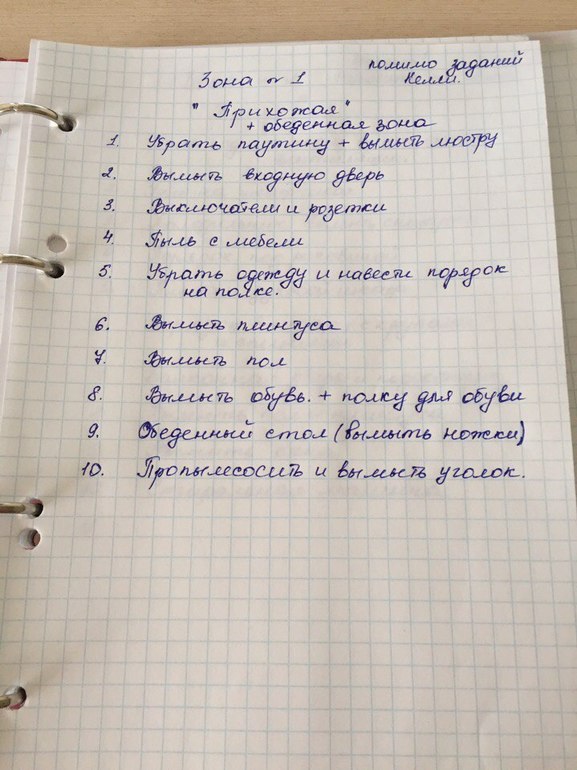 помимо заданий
Зона № 1 Нелли.
"Прихожая"
+ обеденная зона
1. Убрать паутину + вымыть люстру
2. Вымыть входную дверь
3. Выключатели и розетки
4. Пыль с мебели
5. Убрать одежду и навести порядок
на полке.
6. Вымыть плинтуса
7. Вымыть пол
8. Вымыть обувь. + полку для обуви
9. Обеденный стол (вымыть ножки)
10. Пропылесосить и вымыть уголок.